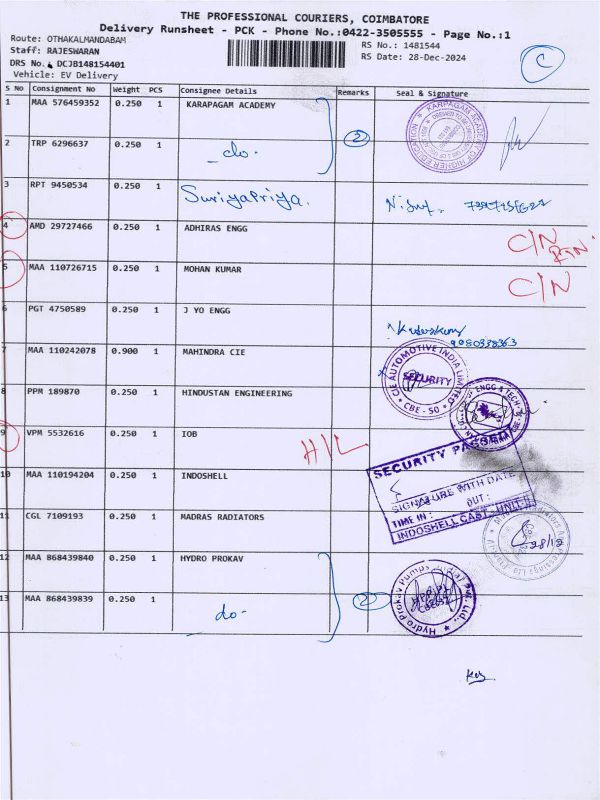 THE PROFESSIONAL COURIERS, COIMBATORE
Delivery Runsheet - PCK - Phone No.:0422-3505555 - Page No.:1
Route: OTHAKALMANDABAM
RS No.: 1481544
Staff: RAJESWARAN
RS Date: 28-Dec-2024
DRS No. DCJB148154401
Vehicle: EV Delivery
C
S No Consignment No Weight PCS Consignee Details Remarks Seal & Signature
1 MAA 576459352 0.250 1 KARAPAGAM ACADEMY
2
2 TRP 6296637 0.250 1 do.
3 RPT 9450534 0.250 1 Suriyapriya.
4 AMD 29727466 0.250 1 ADHIRAS ENGG C/N
5 MAA 110726715 0.250 1 MOHAN KUMAR C/N
6 PGT 4750589 0.250 1 J YO ENGG
7 MAA 110242078 0.900 1 MAHINDRA CIE
CIE AUTOMOTIVE INDIA LIMITED
SECURITY
CBE - 50
8 PPM 189870 0.250 1 HINDUSTAN ENGINEERING
9 VPM 5532616 0.250 1 IOB H/L
10 MAA 110194204 0.250 1 INDOSHELL
SECURITY PASSED
SIGNATURE WITH DATE
TIME IN : OUT :
INDOSHELL CAST UNIT II
11 CGL 7109193 0.250 1 MADRAS RADIATORS
28/12
12 MAA 868439840 0.250 1 HYDRO PROKAV
2
13 MAA 868439839 0.250 1 do-
Hydro Prokav Pumps (India) Pvt. Ltd.,